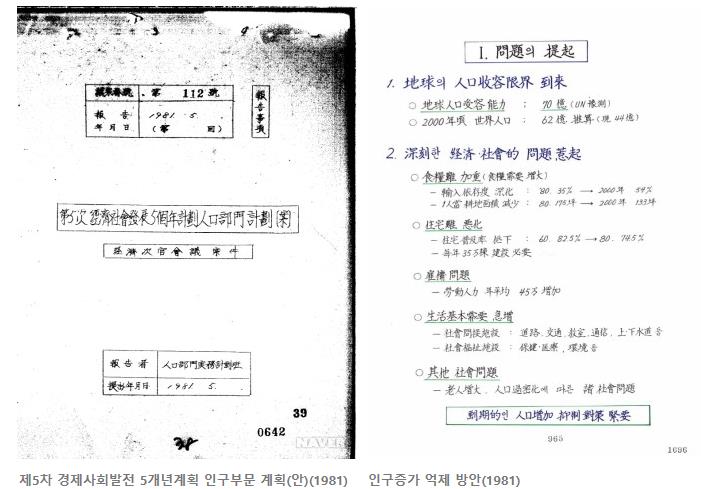 議案番號 第 112 號
報告年月日 1981. 5. . (第 回)
報告事項
第5次 經濟社會發展 5個年計劃 人口部門 計劃(案)
經濟次官會議 案件
報告者 人口部門實務計劃班
提出年月日 1981. 5. .
39
0642
NAVER
제5차 경제사회발전 5개년계획 인구부문 계획(안)(1981)
I. 問題의 提起
1. 地球의 人口收容限界 到來
○ 地球人口受容能力 : 70億 (UN豫測)
○ 2000年頃 世界人口 : 62億 推算 (現 44億)
2. 深刻한 經濟·社會的 問題惹起
○ 食糧難 加重 (食糧需要 增大)
- 輸入依存度 深化 : '80. 35% → 2000年 54%
- 1人當 耕地面積 減少 : '80. 175坪 → 2000年 133坪
○ 住宅難 惡化
- 住宅普及率 低下 : 60. 82.5% → 80. 74.5%
- 每年 35万棟 建設 必要
○ 雇傭問題
- 勞動人力 年平均 45万 增加
○ 生活基本需要 急增
- 社會間接施設 : 道路, 交通, 敎室, 通信, 上·下水道 等
- 社會福祉施設 : 保健·医療, 環境 等
○ 其他 社會問題
- 老人增大, 人口過密化에 따른 諸 社會問題
劃期的인 人口增加 抑制 對策 緊要
965
1696
인구증가 억제 방안(1981)